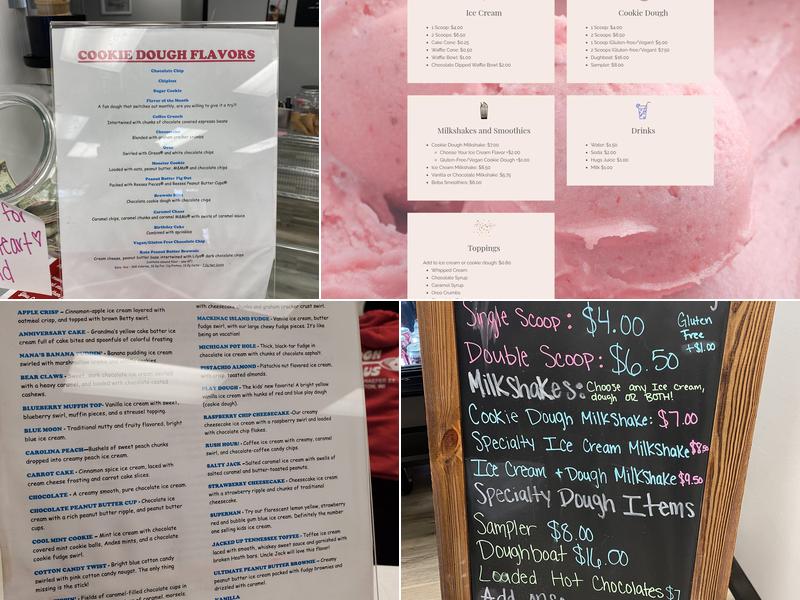 COOKIE DOUGH FLAVORS
Chocolate Chip
Chipless
Sugar Cookie
Flavor of the Month
A fun dough that switches out monthly, are you willing to give it a try?!
Coffee Crunch
Intertwined with chunks of chocolate covered espresso beans
Cheesecake
Blended with graham cracker crumbs
Oreo
Swirled with Oreos® and white chocolate chips
Monster Cookie
Loaded with oats, peanut butter, M&Ms® and chocolate chips
Peanut Butter Pig Out
Packed with Reeses Pieces® and Reeses Peanut Butter Cups®
Brownie
Chocolate cookie dough with chocolate chips
Caramel Chaos
Caramel chips, caramel chunks and caramel M&Ms® with swirls of caramel sauce
Birthday Cake
Combined with sprinkles
Vegan/Gluten Free Chocolate Chip
Keto Peanut Butter Brownie
Cream cheese, peanut butter base intertwined with Lilys® dark chocolate chips
for
heart
Ice Cream
1 Scoop: $4.00
2 Scoops: $6.50
Cake Cone: $0.25
Waffle Cone: $0.50
Waffle Bowl: $1.00
Chocolate Dipped Waffle Bowl $2.00
Cookie Dough
1 Scoop: $4.00
2 Scoops: $6.50
1 Scoop (Gluten-free/Vegan): $5.00
2 Scoops (Gluten-free/Vegan): $7.50
Doughboat: $16.00
Sampler: $8.00
Milkshakes and Smoothies
Cookie Dough Milkshake: $7.00
Choose Your Ice Cream Flavor +$2.00
Gluten-Free/Vegan Cookie Dough +$1.00
Ice Cream Milkshake: $8.50
Vanilla or Chocolate Milkshake: $5.75
Boba Smoothies: $6.00
Drinks
Water: $1.50
Soda: $2.00
Hugs Juice: $1.00
Milk: $1.00
Toppings
Add to ice cream or cookie dough: $0.80
Whipped Cream
Chocolate Syrup
Caramel Syrup
Oreo Crumbs
APPLE CRISP – Cinnamon-apple ice cream layered with
oatmeal crisp, and topped with brown Betty swirl.
ANNIVERSARY CAKE - Grandma's yellow cake batter ice
cream full of cake bites and spoonfuls of colorful frosting
NANA'S BANANA PUDDIN' - Banana pudding ice cream
swirled with marshmallow
BEAR CLAWS - Sweet, dark chocolate ice cream swirled
with a heavy caramel, and loaded with chocolate coated
cashews.
BLUEBERRY MUFFIN TOP- Vanilla ice cream with sweet,
blueberry swirl, muffin pieces, and a streusel topping.
BLUE MOON - Traditional nutty and fruity flavored, bright
blue ice cream.
CAROLINA PEACH—Bushels of sweet peach chunks
dropped into creamy peach ice cream.
CARROT CAKE - Cinnamon spice ice cream, laced with
cream cheese frosting and carrot cake slices.
CHOCOLATE - A creamy smooth, pure chocolate ice cream.
CHOCOLATE PEANUT BUTTER CUP - Chocolate ice
cream with a rich peanut butter ripple, and peanut butter
cups.
COOL MINT COOKIE – Mint ice cream with chocolate
covered mint cookie balls, Andes mints, and a chocolate
cookie fudge swirl.
COTTON CANDY TWIST - Bright blue cotton candy
swirled with pink cotton candy nougat. The only thing
missing is the stick!
Fields of caramel-filled chocolate cups in
with cheesecake chunks and graham cracker crust swirl.
MACKINAC ISLAND FUDGE - Vanilla ice cream, butter
fudge swirl, with our large chewy fudge pieces. It's like
being on vacation!
MICHIGAN POT HOLE - Thick, black-tar fudge in
chocolate ice cream with chunks of chocolate asphalt.
PISTACHIO ALMOND - Pistachio nut flavored ice cream,
with crisp, toasted almonds.
PLAY DOUGH - The kids' new favorite! A bright yellow
vanilla ice cream with hunks of red and blue play dough
(cookie dough).
RASPBERRY CHIP CHEESECAKE -Our creamy
cheesecake ice cream with a raspberry swirl and loaded
with chocolate chip flakes.
RUSH HOUR! - Coffee ice cream with creamy, caramel
swirl, and chocolate-coffee candy chips.
SALTY JACK -Salted caramel ice cream with swells of
salted caramel and butter-toasted peanuts.
STRAWBERRY CHEESECAKE - Cheesecake ice cream
with a strawberry ripple and chunks of traditional
cheesecake.
SUPERMAN - Try our florescent lemon yellow, strawberry
red and bubble gum blue ice cream. Definitely the number
one selling kids ice cream.
JACKED UP TENNESSEE TOFFEE - Toffee ice cream
laced with smooth, whiskey sweet sauce and garnished with
broken Heath bars. Uncle Jack will love this flavor!
ULTIMATE PEANUT BUTTER BROWNIE – Creamy
peanut butter ice cream packed with fudgy brownies and
drizzled with caramel.
VANILLA
Single Scoop: $4.00
Gluten
Free
+$1.00
Double Scoop: $6.50
Milkshakes: Choose any Ice cream,
dough OR BOTH!
Cookie Dough Milkshake: $7.00
Specialty Ice Cream Milkshake $8.50
Ice Cream + Dough Milkshake $9.50
Specialty Dough Items
Sampler $8.00
Doughboat $16.00
Loaded Hot Chocolates $7